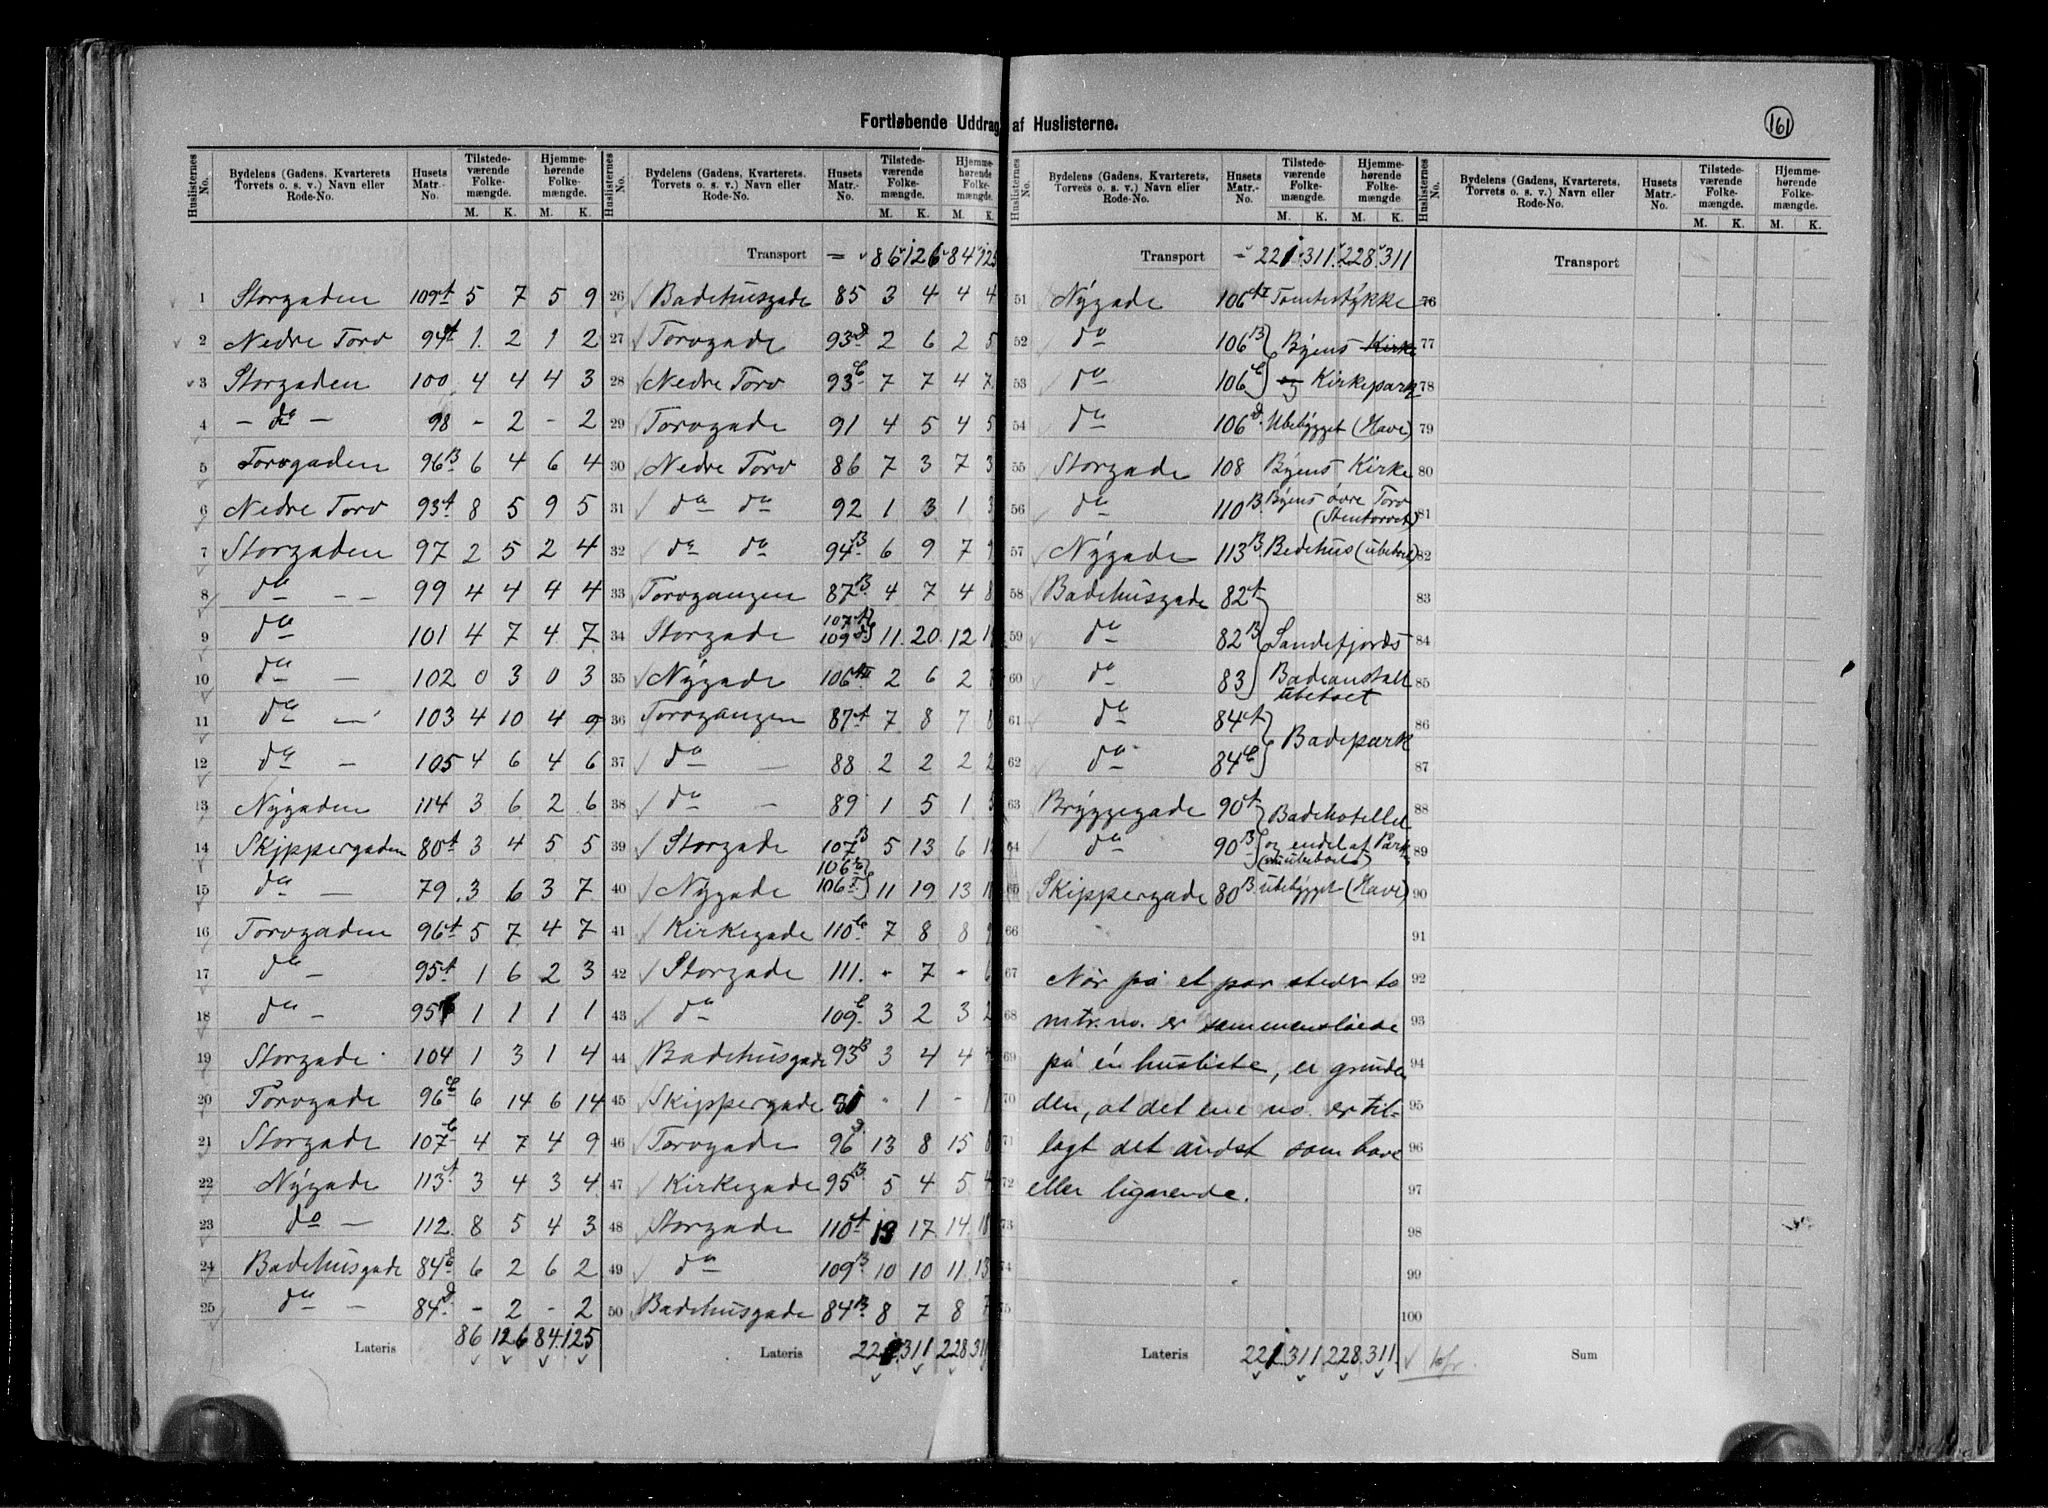 161
Fortløbende Uddrag af Huslisterne.
Huslisternes No. Bydelens (Gadens, Kvarterets, Torvets o. s. v.) Navn eller Rode-No. Husets Matr.-No. Tilstedeværende Folkemængde. M. K. Hjemmehørende Folkemængde. M. K.
1 Storgaden 109A 5 7 5 9
2 Nedre Torv 94A 1 2 1 2
3 Storgaden 100 4 4 4 3
4 - do - 98 - 2 - 2
5 Torvgaden 96B 6 4 6 4
6 Nedre Torv 93A 8 5 9 5
7 Storgaden 97 2 5 2 4
8 do - - 99 4 4 4 4
9 do 101 4 7 4 7
10 do - 102 0 3 0 3
11 do - 103 4 10 4 9
12 do - 105 4 6 4 6
13 Nÿgaden 114 3 6 2 6
14 Skippergaden 80A 3 4 5 5
15 do - 79 3 6 3 7
16 Torvgaden 96A 5 7 4 7
17 do - 95A 1 6 2 3
18 do - 95 1 1 1 1
19 Storgade 104 1 3 1 4
20 Torvgade 96C 6 14 6 14
21 Storgade 107C 4 7 4 9
22 Nÿgade 113A 3 4 3 4
23 do - 112 8 5 4 3
24 Badehusgade 84 6 2 6 2
25 do - 84D - 2 - 2
Lateris 86 126 84 125
Huslisternes No. Bydelens (Gadens, Kvarterets, Torvets o. s. v.) Navn eller Rode-No. Husets Matr.-No. Tilstedeværende Folkemængde. M. K. Hjemmehørende Folkemængde. M. K.
Transport = 86 126 84 125
26 Badehusgade 85 3 4 4 4
27 Torvgade 93D 2 6 2 5
28 Nedre Torv 93C 7 7 4 7
29 Torvgade 91 4 5 4 5
30 Nedre Torv 86 7 3 7 3
31 do do 92 1 3 1 3
32 do do 94B 6 9 7 9
33 Torvgangen 87B 4 7 4 8
34 Storgade 107A 109D 11 20 12
35 Nÿgade 106 2 6 2
36 Torvgangen 87A 7 8 7 8
37 do - 88 2 2 2 2
38 do - 89 1 5 1
39 Storgade 107B 5 13 6
40 Nÿgade 106 106 11 19 13
41 Kirkegade 110C 7 8 8
42 Storgade 111. " 7 " 6
43 do 109C 3 2 3 2
44 Badehusgade 93B 3 4 4
45 Skippergade " 1 -
46 Torvgade 96D 13 8 15 8
47 Kirkegade 95B 5 4 5 4
48 Storgade 110A 13 17 14 18
49 do 109B 10 10 11 13
50 Badehusgade 84B 8 7 8 7
Lateris 221 311 228 311
Huslisternes No. Bydelens (Gadens, Kvarterets, Torvets o. s. v.) Navn eller Rode-No. Husets Matr.-No. Tilstedeværende Folkemængde. M. K. Hjemmehørende Folkemængde. M. K.
Transport = 221 311 228 311
51 Nÿgade 106 Tomtestÿkke
52 do 106B Bÿens Kirke
53 do 106C og Kirkepark
54 do 106D Ubebÿgget (Have)
55 Storgade 108 Bÿens Kirke
56 do 110B Bÿens øvre Torv (Stentorvet)
57 Nÿgade 113B Bedehus (ubeboet)
58 Badehusgade 82A
59 do 82B Sandefjords
60 do 83 Badeanstalt ubeboet
61 do 84A
62 do 84C Badepark
63 Brÿggegade 90A Badehotellet
64 do 90B og endel af Park (ubeboet)
65 Skippergade 80B ubebÿgget (Have)
66
67 Når på et par steder to
68 mtr.no. er sammenslåede
69 på én husliste, er grunden
70 den, at det ene no. er til-
71 lagt det andet som have
72 eller lignende.
73
74
75
Lateris 221 311 228 311
Huslisternes No. Bydelens (Gadens, Kvarterets, Torvets o. s. v.) Navn eller Rode-No. Husets Matr.-No. Tilstedeværende Folkemængde. M. K. Hjemmehørende Folkemængde. M. K.
Transport
76
77
78
79
80
81
82
83
84
85
86
87
88
89
90
91
92
93
94
95
96
97
98
99
100
Sum